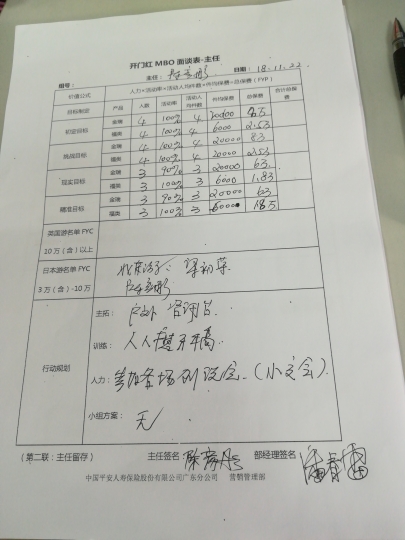 开门红 MBO 面谈表-主任
组号： 主任： 日期：18.11.22
价值公式 人力×活动率×活动人均件数×件均保费=总保费（FYP）
目标制定 产品 人数 活动率 活动人均件数 件均保费 总保费 合计总保费
初定目标 金瑞 4 100% 4 20000 8万
福类 4 100% 4 6000 2.5万
挑战目标 金瑞 4 100% 4 20000 8万
福类 4 100% 4 6000 2.5万
现实目标 金瑞 3 90% 3 20000 6万
福类 3 100% 3 6000 1.8万
精准目标 金瑞 3 90% 3 20000 6万
福类 3 100% 3 6000 1.8万
英国游名单 FYC
10 万（含）以上
日本游名单 FYC
3 万（含）-10万
行动规划
主拓：
训练：人人
人力：参加各场创说会.（小交会）.
小组方案：无
（第二联：主任留存） 主任签名 部经理签名
中国平安人寿保险股份有限公司广东分公司 营销管理部